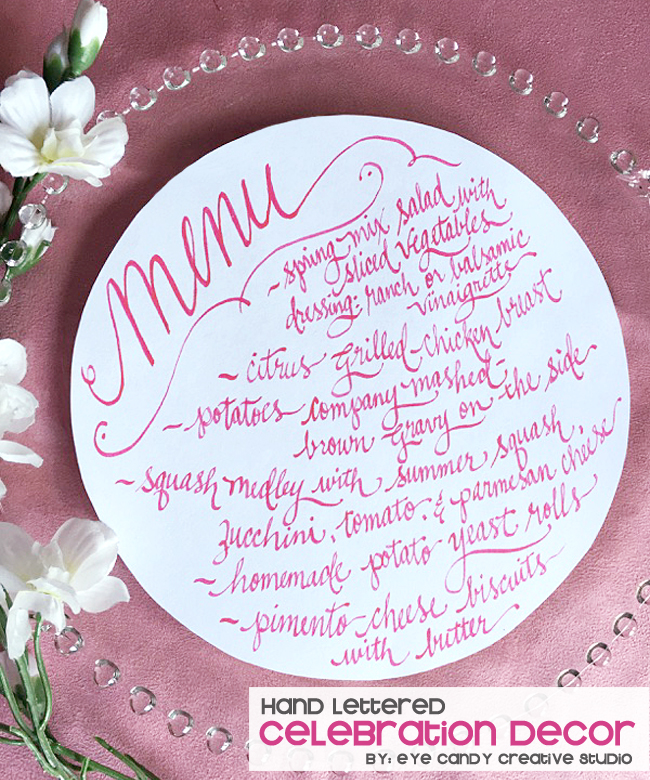 menu
~ spring mix salad with
sliced vegetables
dressing: ranch or balsamic
vinaigrette
~ citrus grilled chicken breast
~ potatoes company mashed-
brown gravy on the side
~ squash medley with summer squash,
zucchini, tomato, & parmesan cheese
~ homemade potato yeast rolls
~ pimento cheese biscuits
with butter
Hand Lettered
Celebration Decor
by: eye candy creative studio